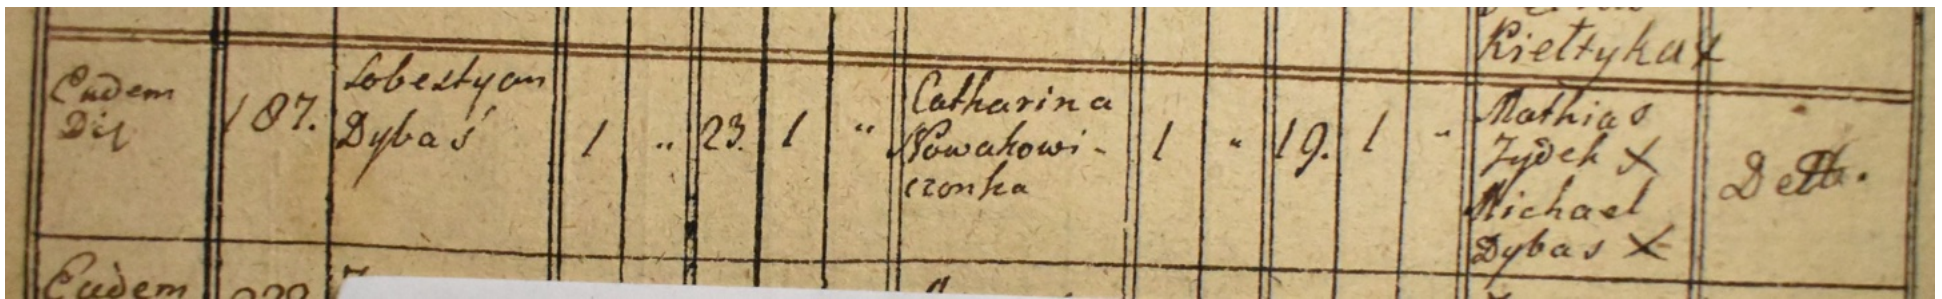 Kiełtyka x
Eadem
Die
187.
Sobestyan
Dybaś
1 " 23. 1 "
Catharina
Nowakowi-
czonka
1 " 19. 1 "
Mathias
Zydek X
Michael
Dybas X
Detto.
Eadem